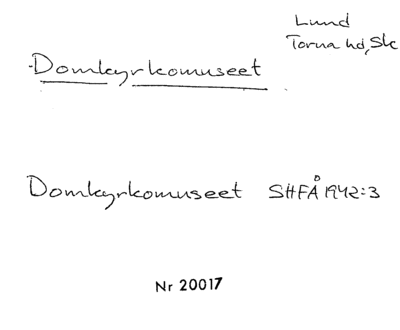 Lund
Torna hd, Sk
Domkyrkomuseet
Domkyrkomuseet SHFÅ 1942:3
Nr 20017